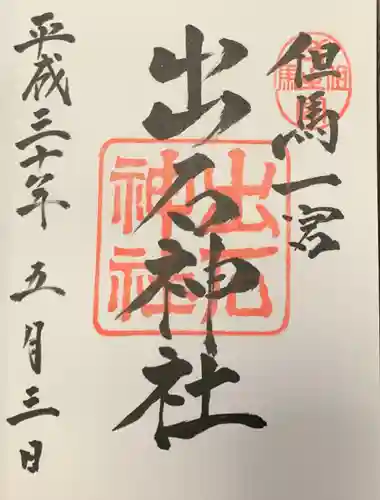 但馬一宮
出石神社
平成三十年五月三日
出石
神社